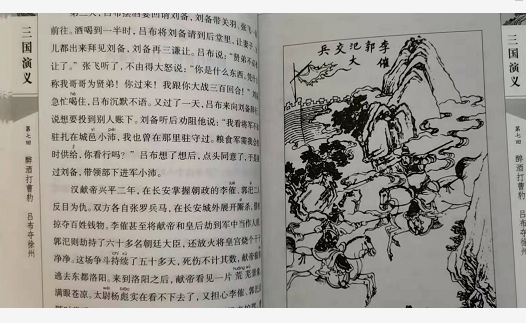 三国演义
第七回
醉酒打曹豹 吕布夺徐州
前往。酒喝到一半时，吕布将刘备请到后堂里，让妻子、女
儿都出来拜见刘备，刘备再三谦让。吕布说：“贤弟不
让了。”张飞听了，不由得大怒说：“你是什么东西，
称我哥哥为贤弟！你过来！我跟你大战三百回合！”刘
急忙喝住，吕布沉默不语。又过了一天，吕布来向刘备
说想要投到别人账下。刘备听后劝阻他说：“我看将军不
驻扎在城邑小沛，我也曾在那里驻守过。粮食军需我会
时供给，你看行吗？”吕布想了想后，点头同意了，于是
过刘备，带领部下进军小沛。
汉献帝兴平二年，在长安掌握朝政的李傕、郭汜二人
反目为仇。双方各自张罗兵马，在长安城外展开厮杀，
掠夺百姓钱物。李傕甚至将献帝和皇后劫到军中当作人质
郭汜则劫持了六十多名朝廷大臣，还放火将皇宫烧个干
净净。这场争斗持续了五十多天，死伤不计其数，献帝
逃去东都洛阳。来到洛阳之后，献帝看见一片荒芜
满眼苍凉。太尉杨彪实在看不下去了，又担心李傕、郭
李傕
郭汜
大
交兵
三国演义
第七回
醉酒打曹豹 吕布夺徐州